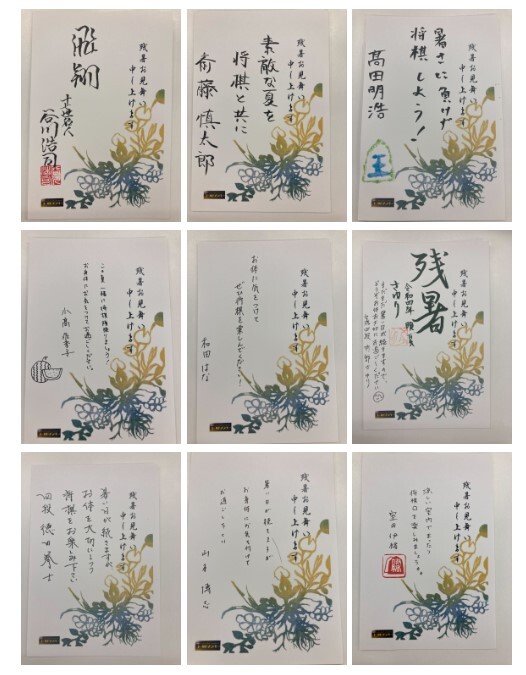 残暑お見舞い
申し上げます
飛翔
十七世名人
谷川浩司
残暑お見舞い
申し上げます
素敵な夏を
将棋と共に
斎藤慎太郎
残暑お見舞い
申し上げます
暑さに負けず
将棋しよう!
髙田明浩
王
残暑お見舞い
申し上げます
お身体にお気をつけてお過ごしください。
残暑お見舞い
申し上げます
お体に気をつけて
ぜひ将棋を楽しんでください!
和田はな
残暑お見舞い
申し上げます
残暑
令和四年
さゆり
まだまだ暑い日が続きますので、
残暑お見舞い
申し上げます
暑い日が続きますが
お体を大切にしつつ
将棋をお楽しみ下さい
残暑お見舞い
申し上げます
暑い日が続きますが
お身体にお気を付けて
お過ごし下さい
残暑お見舞い
申し上げます
涼しい室内でまったり
将棋で楽しみましょう。
室田伊緒